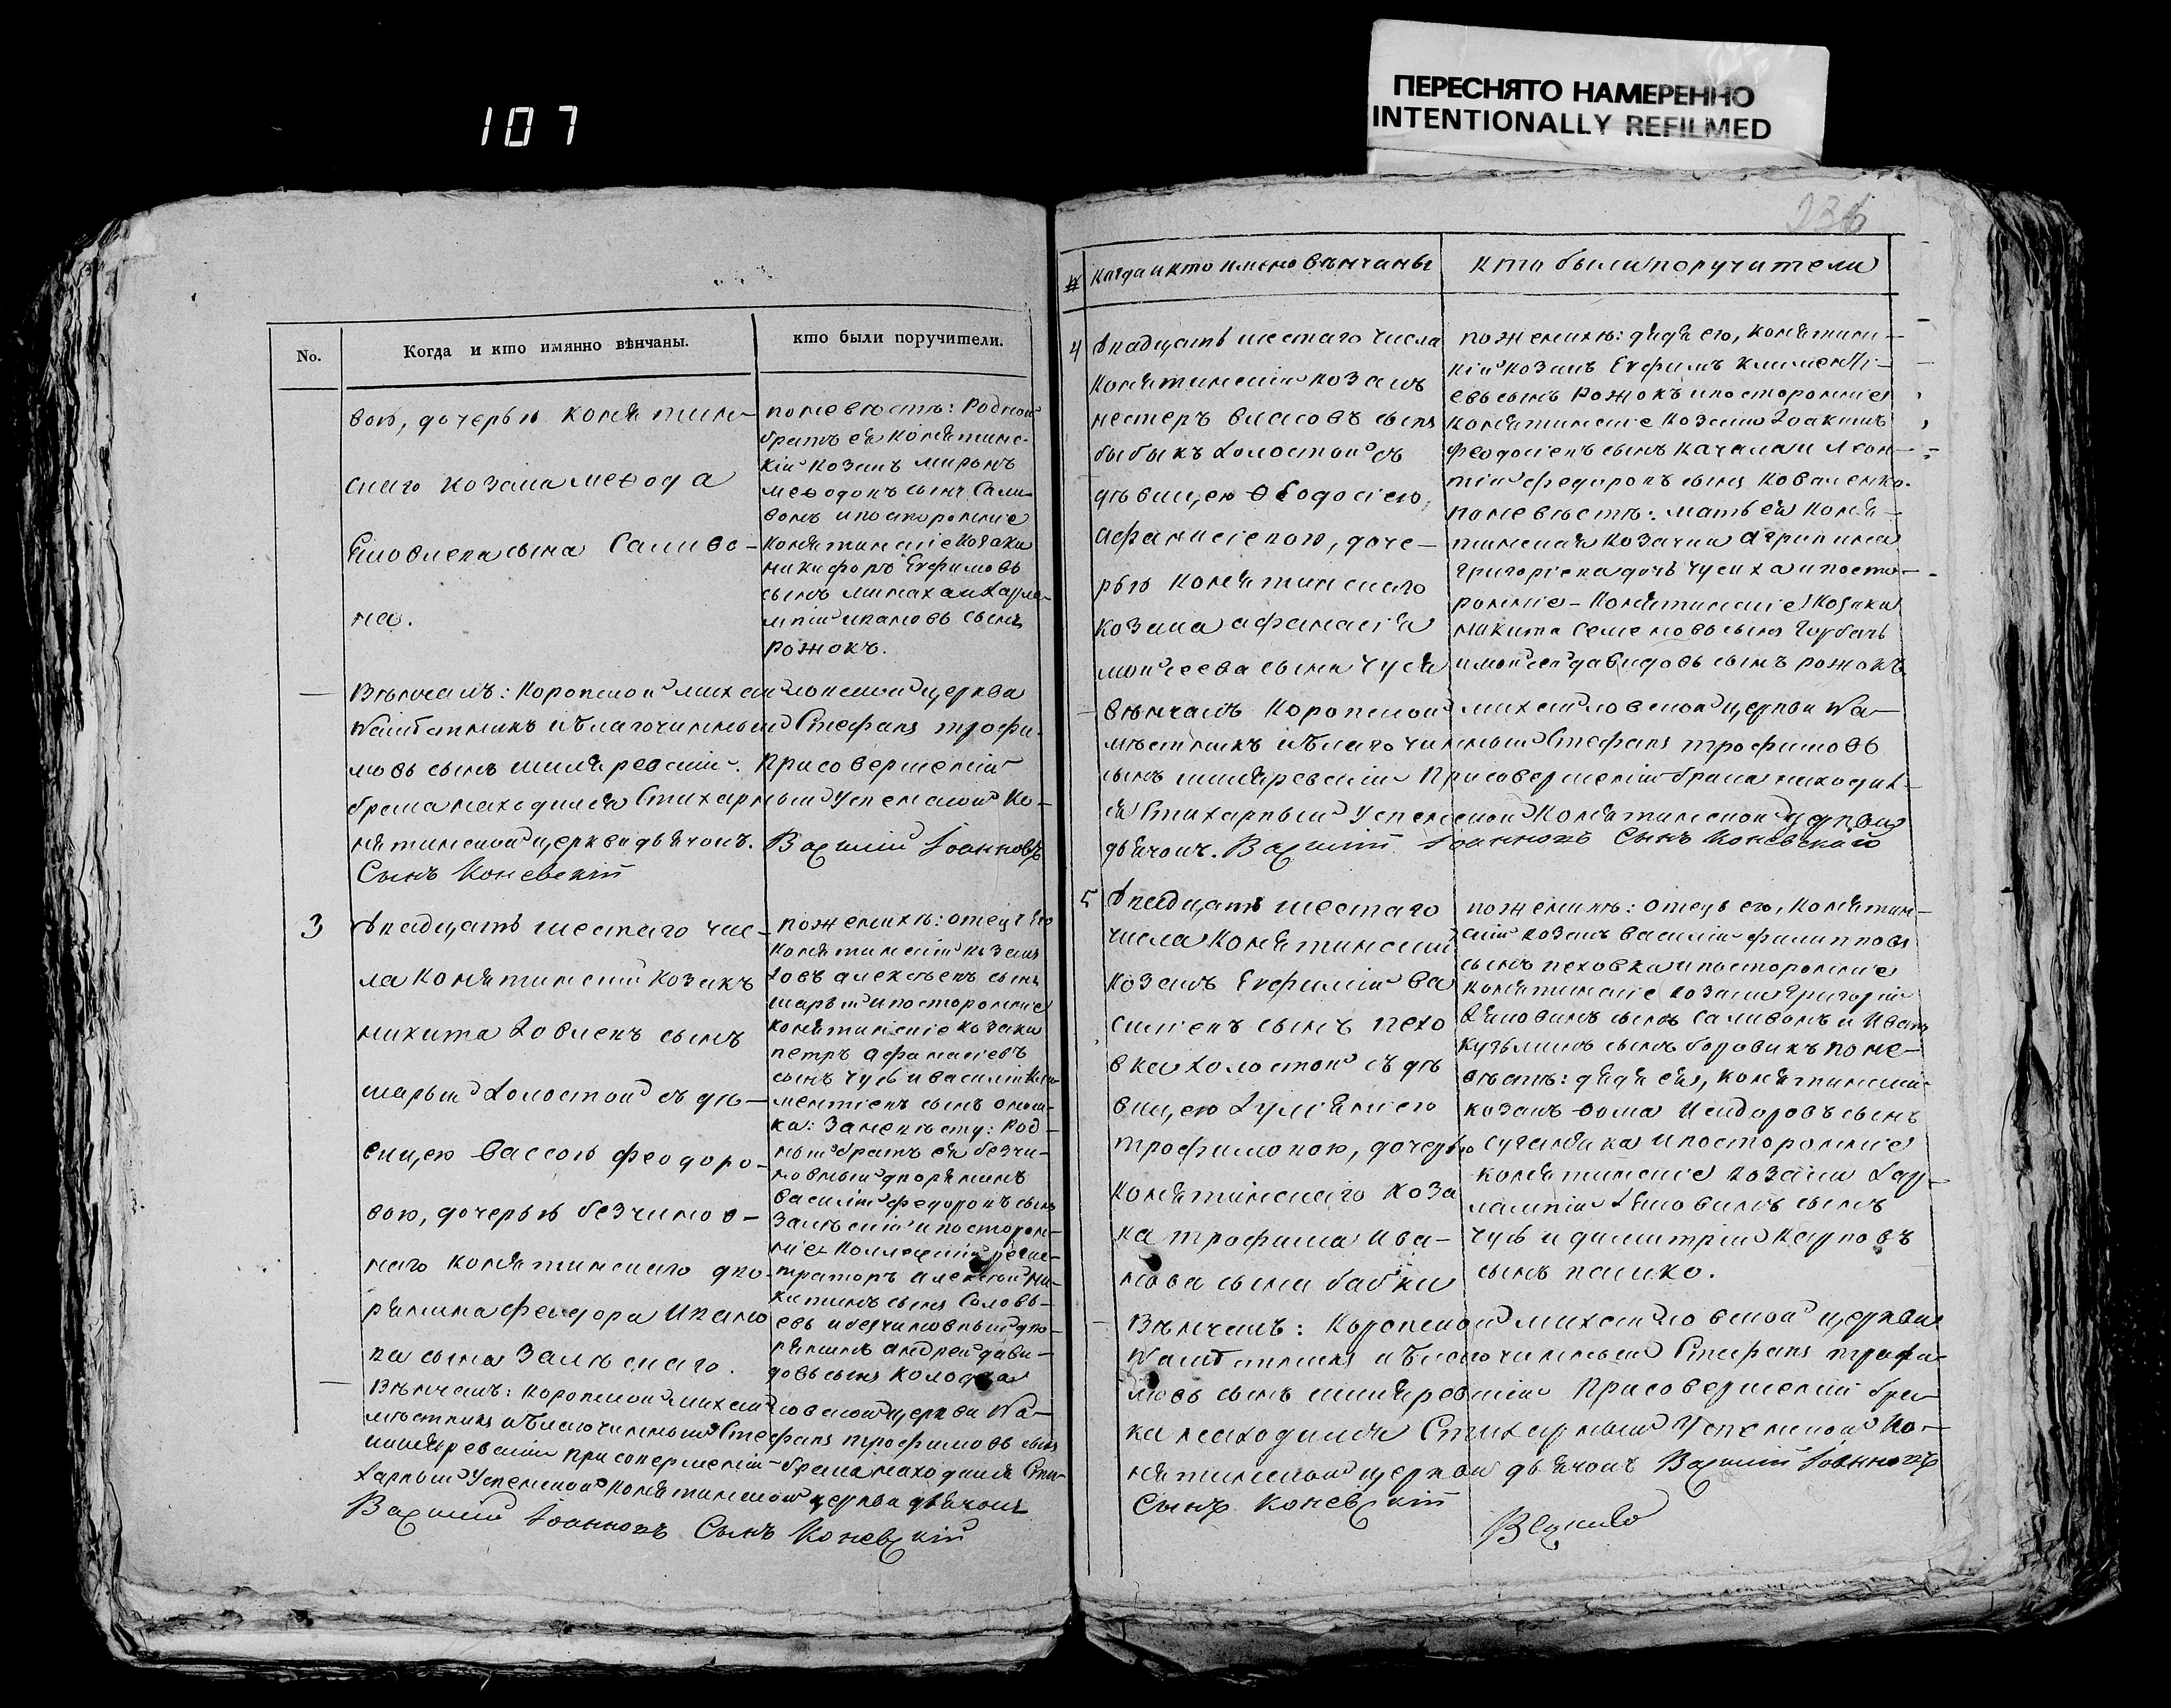 107
ПЕРЕСНЯТО НАМЕРЕННО
INTENTIONALLY REFILMED
236
No.
Когда и кто имянно вѣнчаны.
кто были поручители.
вою, дочерью конятин-
скаго козака меѳода
Яковлева сына Саливо-
на.
по невѣстѣ: Родной
братъ ея конятинс-
кій козакъ миронъ
меѳодовъ сынъ Сали-
вонъ и посторонніе
конятинскіе козаки
никифоръ Евфимовъ
сынъ и Харла-
мпій ивановъ сынъ
рожокъ.
Вѣнчалъ: Коропской михайловской церкви
Намѣстникъ и благочинный Стефанъ трофи-
мовъ сынъ шкляревскій. При совершеніи
брака находился Стихарный Успенской Ко-
нятинской церкви дьячокъ. Василій Іоанновъ
Сынъ Коневскій
3
двадцать шестаго чис-
ла конятинскій козакъ
никита Іовлевъ сынъ
шарый холостой съ дѣ-
вицею вассою феодоро-
вою, дочерью безчинов-
наго конятинскаго дво-
рянина феодора Ивано-
ва сына Залѣскаго.
по женихѣ: отецъ его
конятинскій козакъ
Іовъ алексѣевъ сынъ
шарый и посторонніе
конятинскіе козаки
петръ афанасіевъ
сынъ чусь и василій Кли-
ментіевъ сынъ
за невѣсту: Род-
ный братъ ея безчи-
новный дворянинъ
василій федоровъ сынъ
Залѣскій и посторон-
ніе Коллежскій регис-
траторъ алексѣй ни-
китинъ сынъ Соловь-
евъ и безчиновный дво-
рянинъ андрей дави-
довъ сынъ колодка
Вѣнчалъ: Коропской михайловской церкви На-
мѣстникъ и благочинный Стефанъ трофимовъ сынъ
шкляревскій при совершеніи брака находился Сти-
харный Успенской конятинской церкви дьячокъ
Василій Іоанновъ Сынъ Коневскій
№
когда и кто имено вѣнчаны
кто были поручители
4
двадцать шестаго числа
конятинскій козакъ
нестеръ власовъ сынъ
быбыкъ холостой съ
дѣвицею Ѳеодосіею
афанасіевою, доче-
рью конятинскаго
козака афанасія
моисеева сына чуся
по женихѣ: дядя его, конятинс-
кій козакъ Евфимъ климентi-
евъ сынъ Рожокъ и посторонніе
конятинскіе козаки Іоакимъ
феодосіевъ сынъ качала и леон-
тій федоровъ сынъ коваленко.
по невѣстѣ: мать ея коня-
тинская козачка агрипина
григоріева дочь чусиха и посто-
ронніе - Конятинскіе козаки
никита семеновъ сынъ Горбачъ
и моисей давидовъ сынъ рожокъ
вѣнчалъ Коропской михайловской церкви На-
мѣстникъ и благочинный Стефанъ трофимовъ
сынъ шкляревскій При совершеніи брака находил-
ся Стихарный Успенской Конятинской церкви
дьячокъ. Василій Іоанновъ Сынъ Коневскій
5
двадцать шестаго
числа конятинскій
козакъ Евфимій ва
силіевъ сынъ пехо
вка холостой съ дѣ
вицею Іуліаніею
трофимовою, дочерью
конятинскаго коза
ка трофима ива-
нова сына бабки
по женихѣ: отецъ его, конятин-
скій козакъ василій филиповъ
сынъ пеховка и посторонніе
конятинскіе козаки Григорій
Яковлевъ сынъ саливонъ и Иванъ
кузьминъ сынъ боровикъ по не-
вѣстѣ: дядя ея, конятинскій
козакъ ѳома Исидоровъ сынъ
и посторонніе
конятинскіе козаки Хар-
лампій Яковлевъ сынъ
чусь и димитрій карповъ
сынъ пашко.
Вѣнчалъ: Коропской михайловской церкви
Намѣстникъ и благочинный Стефанъ трофи-
мовъ сынъ шкляревскій При совершеніи бра-
ка находился Стихарный Успенской Ко-
нятинской церкви дьячокъ Василій Іоанновъ
Сынъ Коневскій